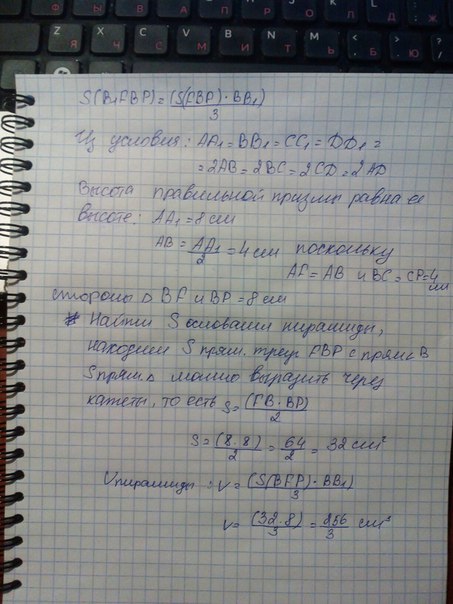 Ф Ы В А П Р О Л Д
Я Ч С М И Т Ь Б Ю
S(B₁FBP) = (S(FBP) · BB₁) / 3
Из условия: AA₁ = BB₁ = CC₁ = DD₁ =
= 2AB = 2BC = 2CD = 2AD
Высота правильной призмы равна ее
высоте: AA₁ = 8 см
AB = AA₁ / 2 = 4 см поскольку
AF = AB и BC = CP = 4 см
стороны △ BF и BP = 8 см
Найти S основания пирамиды,
находием S прям. треуг. FBP с прям ∠ B
S прям. △ можно выразить через
катеты, то есть S = (FB · BP) / 2
S = (8 · 8) / 2 = 64 / 2 = 32 см²
Vпирамиды : V = (S(BFP) · BB₁) / 3
V = (32 · 8) / 3 = 256 / 3 см³